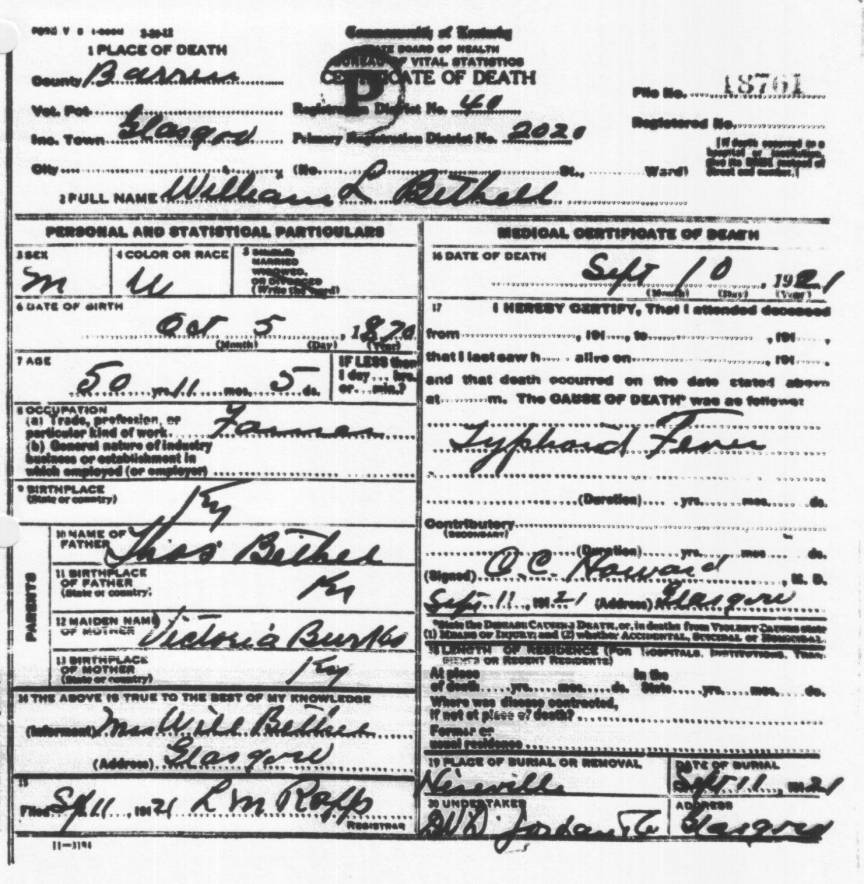 Commonwealth of Kentucky
STATE BOARD OF HEALTH
BUREAU OF VITAL STATISTICS
CERTIFICATE OF DEATH
P
1 PLACE OF DEATH
County Barren
Vot. Pct.
Registration District No. 40
File No. 18761
Inc. Town Glasgow
Primary Registration District No. 2020
Registered No.
City (No. St., Ward)
[If death occurred in a hospital or institution, give its NAME instead of street and number.]
2 FULL NAME William L Bethell
PERSONAL AND STATISTICAL PARTICULARS
3 SEX
M
4 COLOR OR RACE
W
5 SINGLE
MARRIED
WIDOWED,
OR DIVORCED
(Write the word)
6 DATE OF BIRTH
Oct 5, 1870
(Month) (Day) (Year)
7 AGE
50 yrs. 11 mos. 5 ds.
IF LESS than
1 day... hrs.
or... min.?
8 OCCUPATION
(a) Trade, profession, or
particular kind of work Farmer
(b) General nature of industry
business or establishment in
which employed (or employer)
9 BIRTHPLACE
(State or country)
Ky
PARENTS
10 NAME OF
FATHER
Thos Bethel
11 BIRTHPLACE
OF FATHER
(State or country)
Ky
12 MAIDEN NAME
OF MOTHER
Victoria Burks
13 BIRTHPLACE
OF MOTHER
(State or country)
Ky
14 THE ABOVE IS TRUE TO THE BEST OF MY KNOWLEDGE
(Informant) Mrs Will Bethel
(Address) Glasgow
15
Filed Sept 11, 1921 L M Rapp
REGISTRAR
11—3194
MEDICAL CERTIFICATE OF DEATH
16 DATE OF DEATH
Sept 10, 1921
(Month) (Day) (Year)
17 I HEREBY CERTIFY, That I attended deceased
from , 191 , to , 191 ,
that I last saw h alive on , 191 ,
and that death occurred on the date stated above
at m. The CAUSE OF DEATH* was as follows:
Typhoid Fever
(Duration) yrs. mos. ds.
Contributory
(SECONDARY)
(Duration) yrs. mos. ds.
(Signed) O. C. Howard, M. D.
Sept 11, 1921 (Address) Glasgow
*State the DISEASE CAUSING DEATH, or, in deaths from VIOLENT CAUSES state
(1) MEANS OF INJURY; and (2) whether ACCIDENTAL, SUICIDAL or HOMICIDAL.
18 LENGTH OF RESIDENCE (FOR HOSPITALS, INSTITUTIONS, TRANSIENTS OR RECENT RESIDENTS)
At place in the
of death yrs. mos. ds. State yrs. mos. ds.
Where was disease contracted,
if not at place of death?
Former or
usual residence
19 PLACE OF BURIAL OR REMOVAL
DATE OF BURIAL
Sept 11, 1921
20 UNDERTAKER
ADDRESS
Jordan
Glasgow